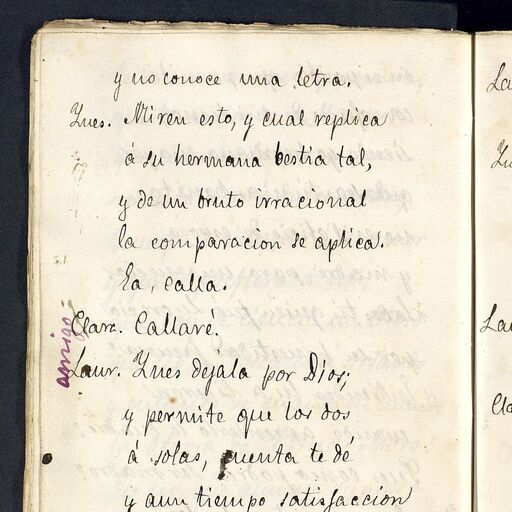 y no conoce una letra.
Ynes. Miren esto, y cual replica
á su hermana bestia tal,
y de un bruto irracional
la comparacion se aplica.
Ea, calla.
Clar. Callaré.
amigo
Laur. Ynes dejála por Dios;
y permite que los dos
á solas, cuenta te dé
y aun tiempo satisfaccion
La
Yn
Lau
Cla